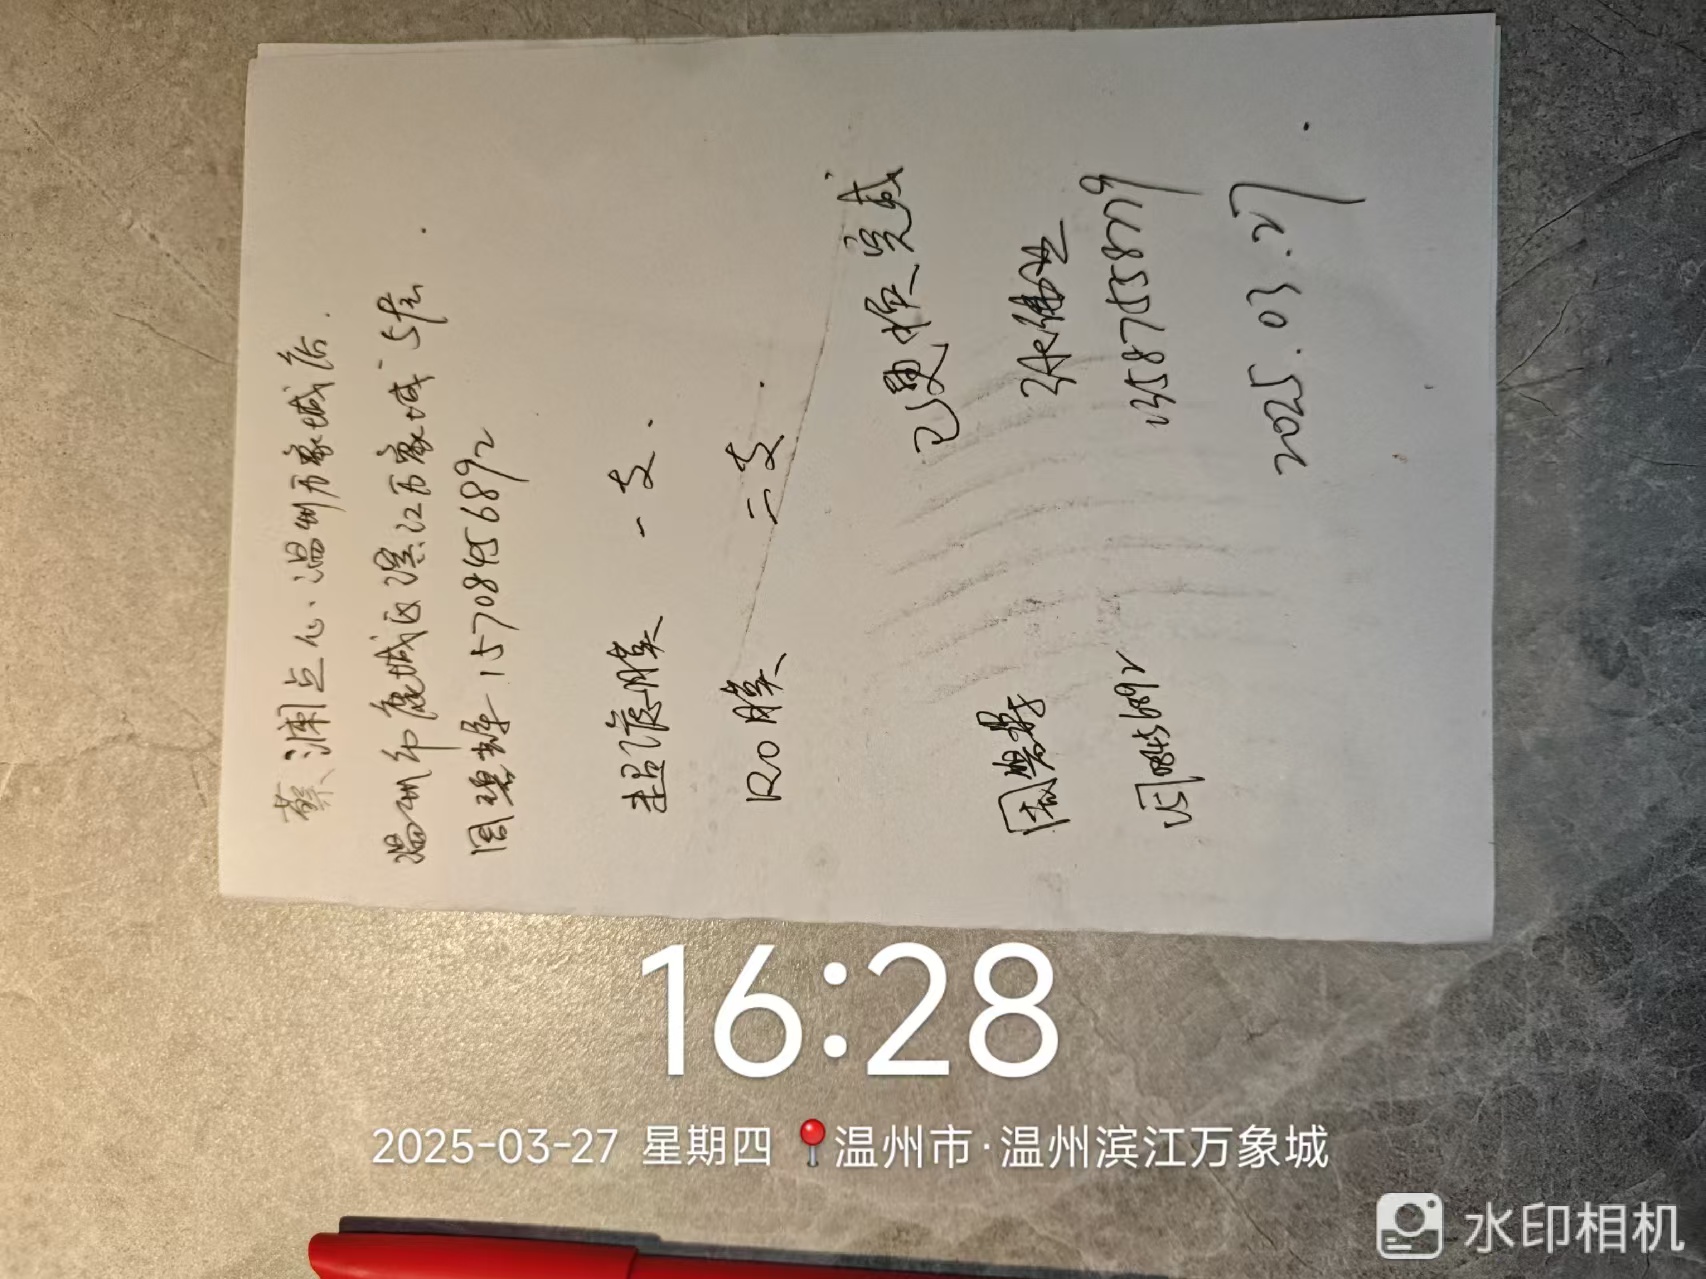 蔡澜点心、温州万象城店.
温州市鹿城区滨江万象城5层
周碧 15708456892
超滤膜 一支.
RO膜 二支.
已更换完成
周碧
15708456892
13587655879
2025.03.27
16:28
2025-03-27 星期四 温州市·温州滨江万象城
水印相机